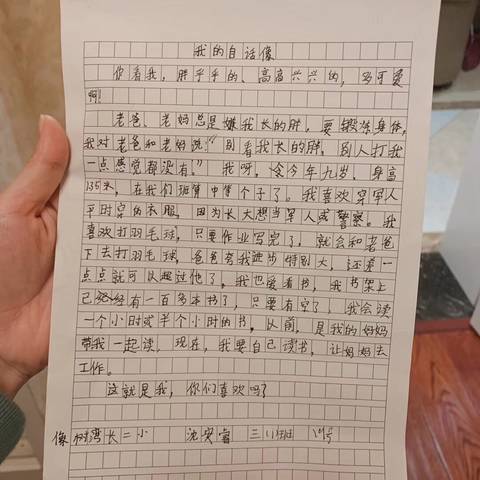 我的自话像
你看我，胖乎乎的、高高兴兴的，多可爱
啊！
老爸、老妈总是嫌我长的胖，要锻炼身体，
我对老爸和老妈说：“别看我长的胖，别人打我
一点感觉都没有。”我呀，今年九岁，身高
135米，在我们班算中等个子了。我喜欢穿军人
平时穿的衣服，因为长大想当军人或警察。我
喜欢打羽毛球，只要作业写完了，就会和老爸
下去打羽毛球，爸爸夸我进步特别大，还差一
点点就可以超过他了。我也爱看书，我书架上
已经有一百多本书了，只要有空了，我会读
一个小时或半个小时的书，以前，是我的妈妈
带我一起读，现在，我要自己读书，让妈妈去
工作。
这就是我，你们喜欢吗？
像 湾长二小 沈 睿 三 班